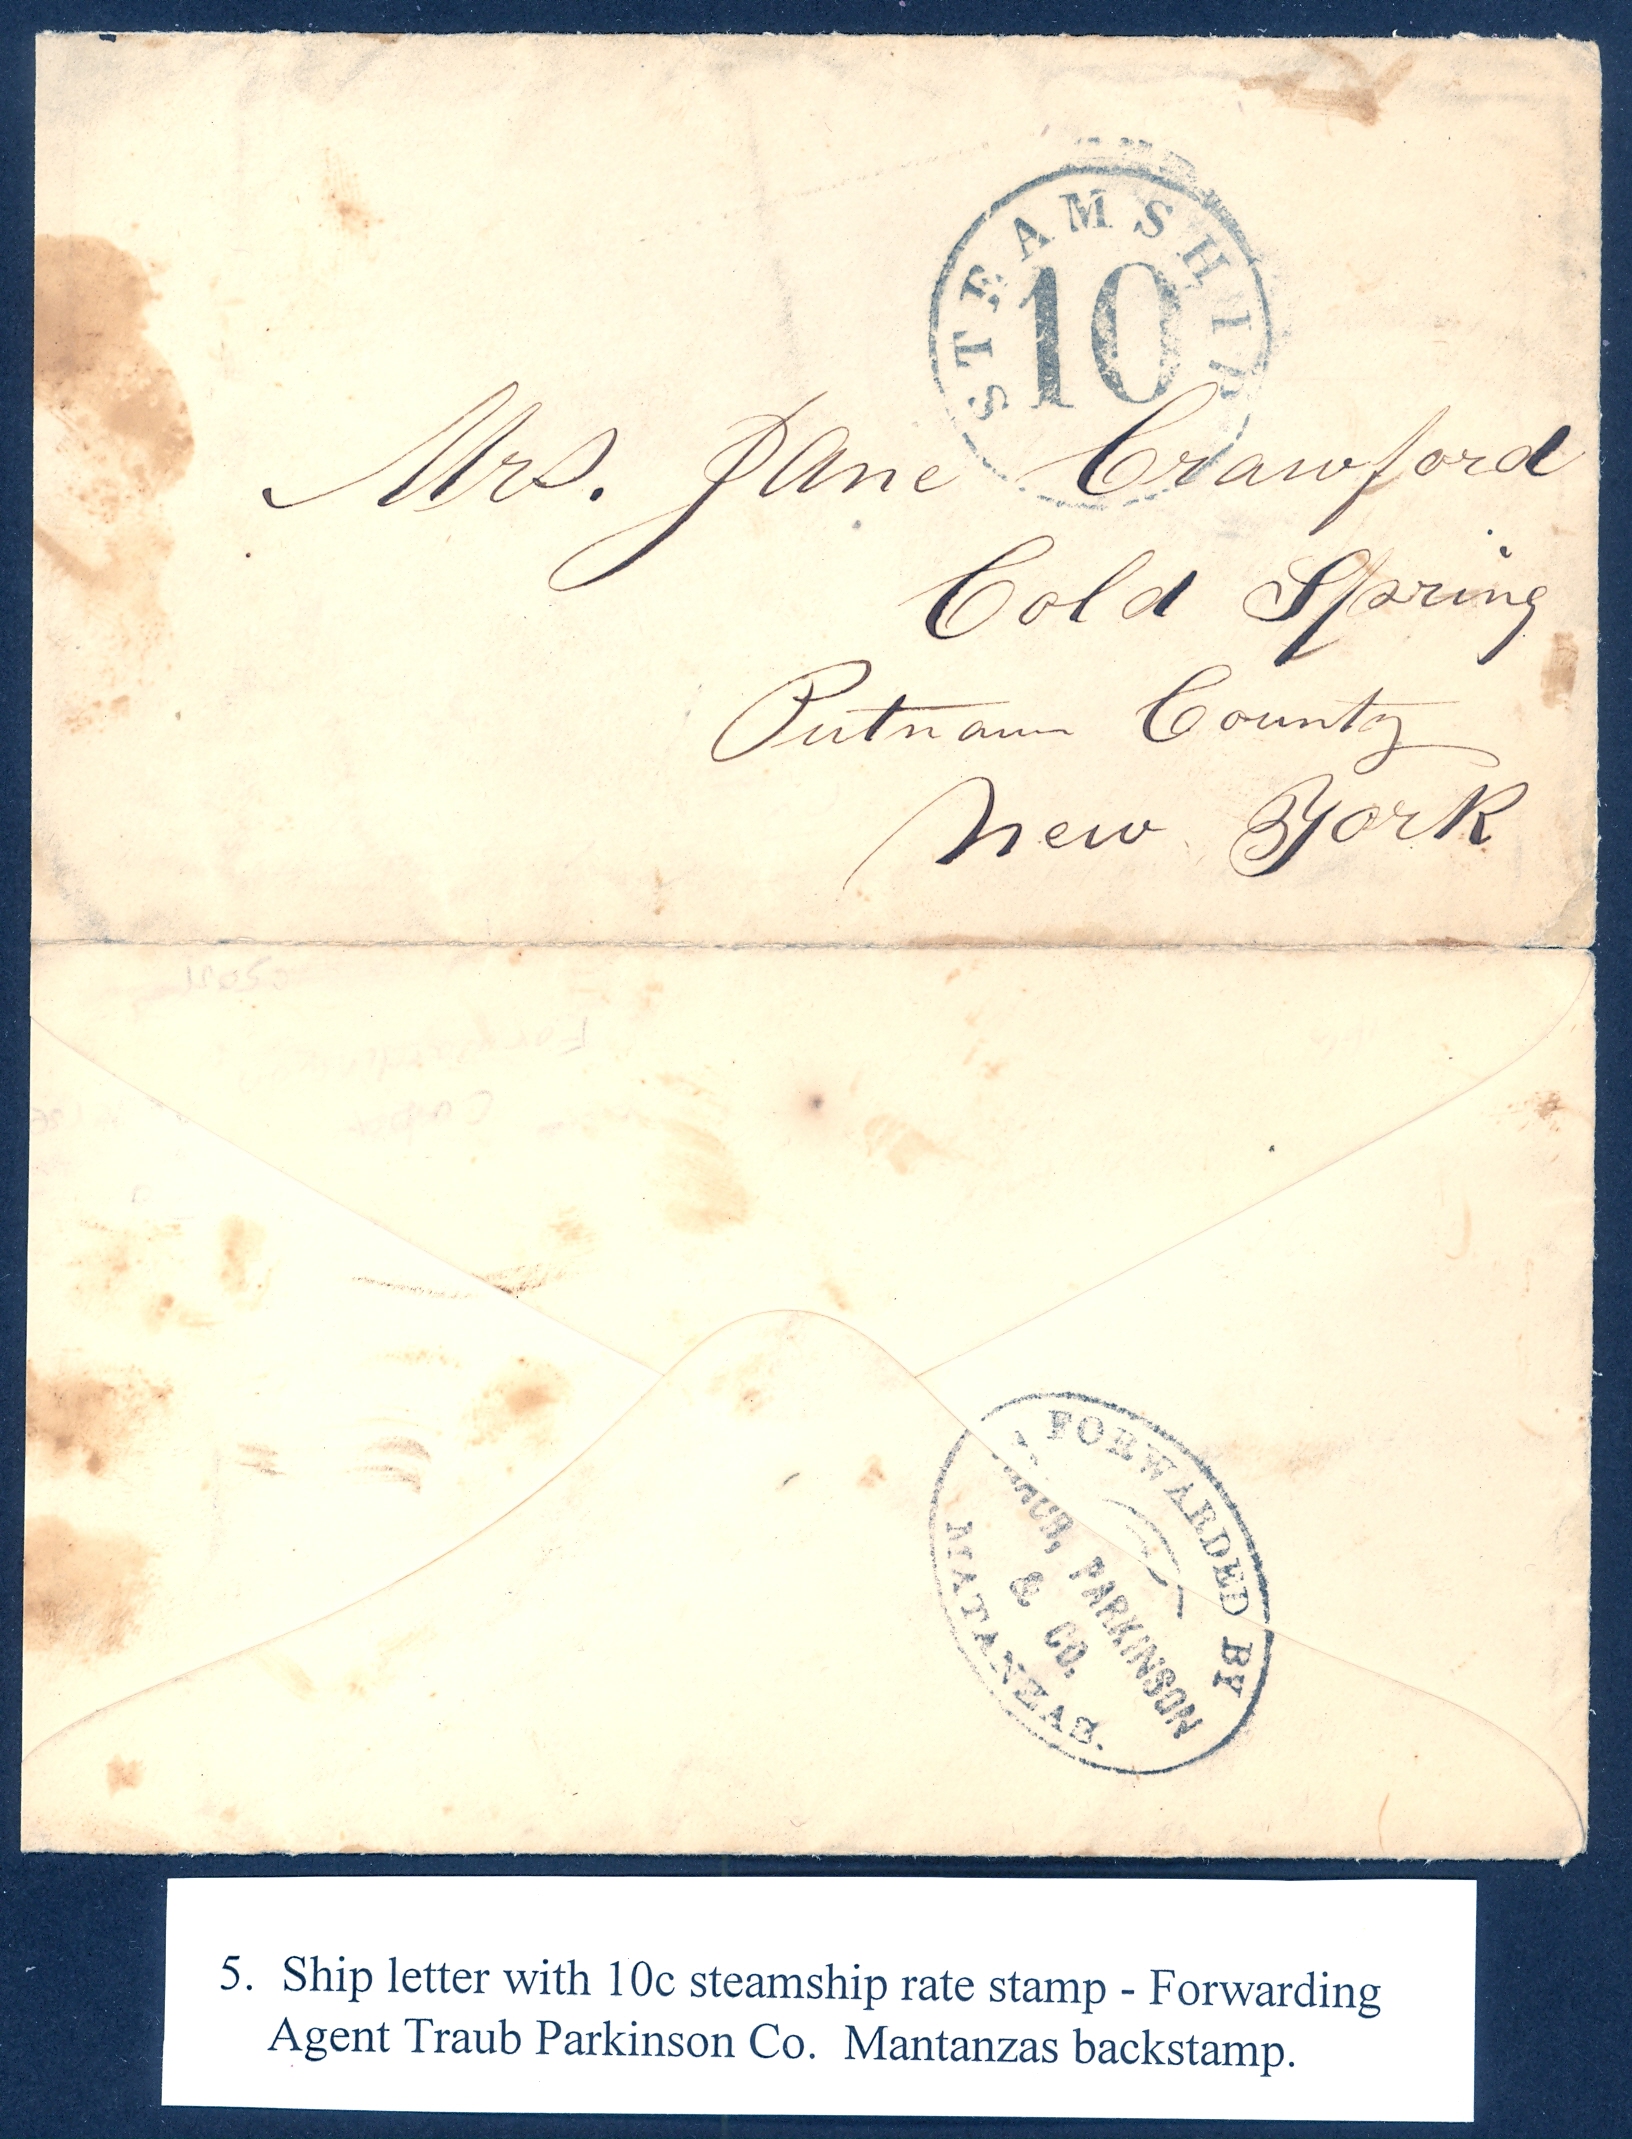 STEAMSHIP
10
Mrs. Jane Crawford
Cold Spring
Putnam County
New York
FORWARDED BY
PARKINSON
& CO.
MATANZAS.
5. Ship letter with 10c steamship rate stamp - Forwarding
Agent Traub Parkinson Co. Mantanzas backstamp.